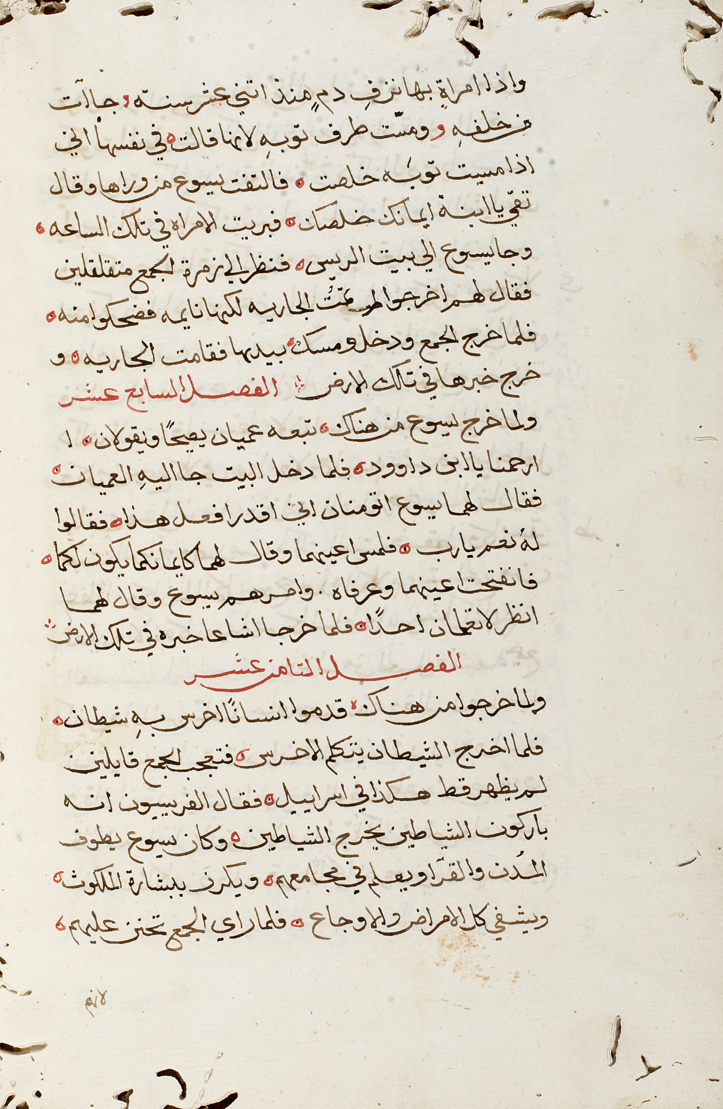 واذا امراةٍ بها نزفِ دمٍ منذ اثني عشر سنه و جاات
من خلفهِ و ومسّت طرف ثوبهِ لانها قالت في نفسها اني
اذا مسيت ثوبَه خلصت فالتفت يسوع من وراها وقال
ثقي يا ابنة ايمانك خلصك فبريت الامراه في تلك الساعه
وجا يسوع الي بيت الريس فنظر الي زمرة الجمع متقلقلين
فقال لهم اخرجوا لم تمُتْ الجاريه لكنها نايمه فضحكوا منه
فلما خرج الجمع ودخل ومسك بيدها فقامت الجاريه و
خرج خبرها في تلك الارض الفصل السابع عشر
ولما خرج يسوع من هناك تبعه عميان يصيحًا ويقولان ا
ارحمنا يا ابن داوود فلما دخل البيت جا اليهِ العميان
فقال لهما يسوع اتومنان اني اقدر افعل هذا فقالوا
لهُ نعم يارب فلمس اعينهما وقال لهما كايمانكما يكون لكما
فانفتحت اعينهما وعرفاه . وامرهم يسوع وقال لهما
انظر لا تعلمان احدًا فلما خرجا اشاعا خبره في تلك الارض
الفصل الثامن عشر
ولما خرجوا من هناك قدموا انسانًا اخرس بهِ شيطان
فلما اخرج الشيطان يتكلم الاخرس فتعجب الجمع قايلين
لم يظهر قط هكذا في اسراييل فقال الفريسيون انه
باركون الشياطين يخرج الشياطين وكان يسوع يطوف
المُدن والقرَا ويعلم في مجامعهم ويكرز ببشارة الملكوث
ويشفي كل الامراض والاوجاع فلما راي الجمع تحنن عليهم
لانهم